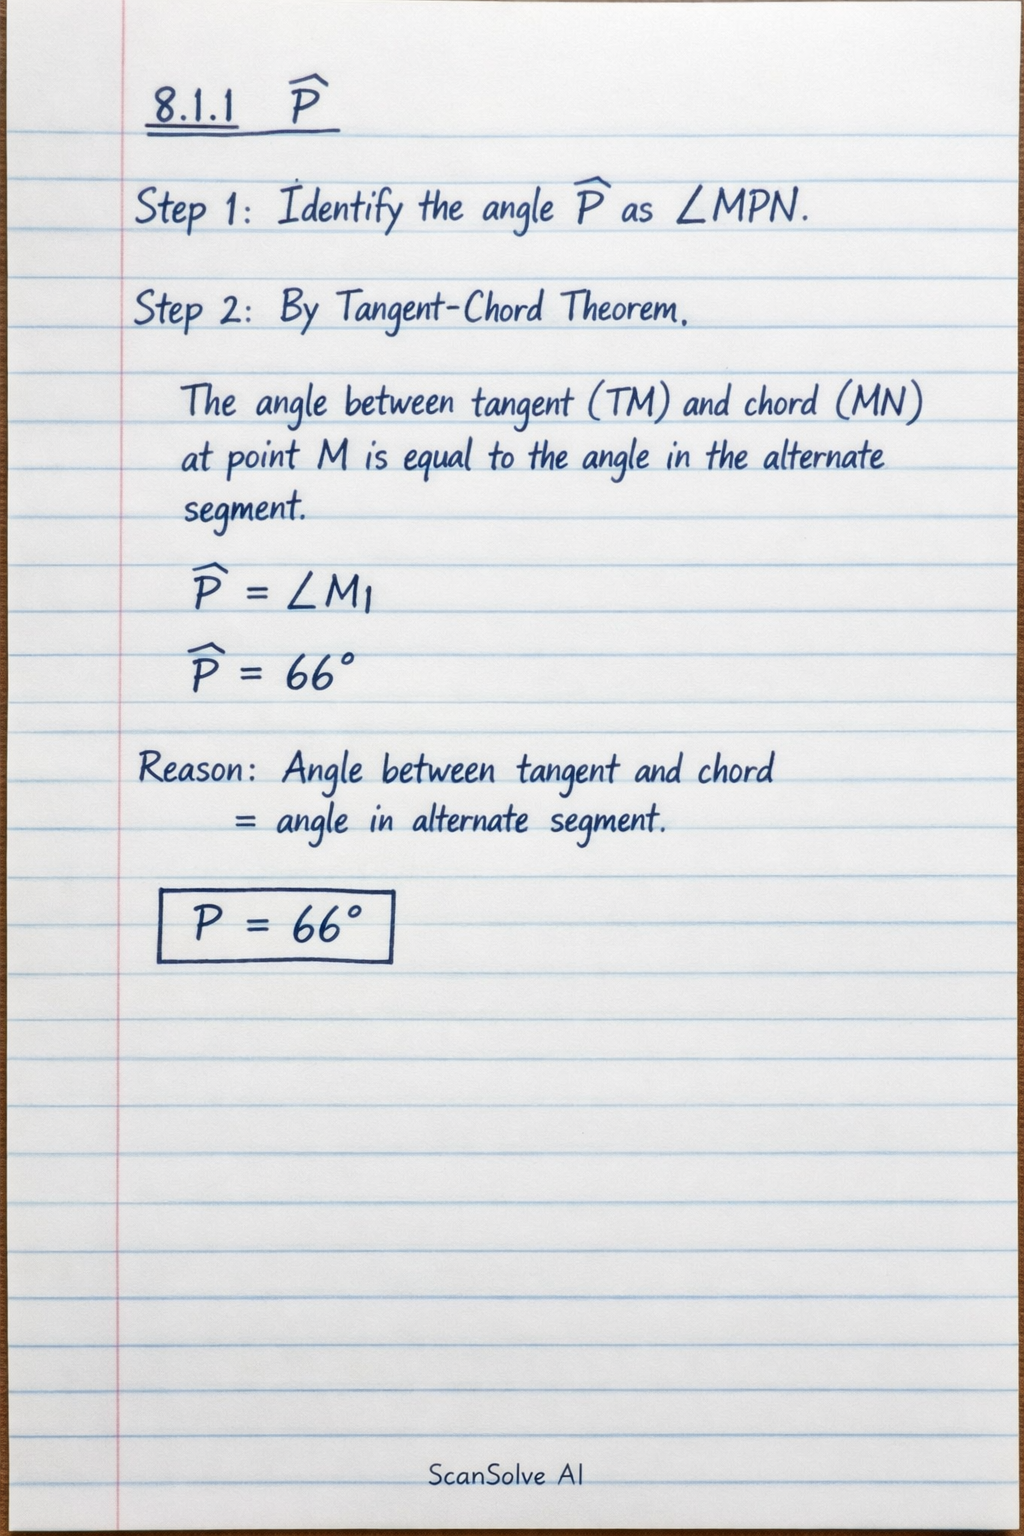 8.1.1 P̂
Step 1: Identify the angle P̂ as ∠MPN.
Step 2: By Tangent-Chord Theorem.
The angle between tangent (TM) and chord (MN)
at point M is equal to the angle in the alternate
segment.
P̂ = ∠M₁
P̂ = 66°
Reason: Angle between tangent and chord
= angle in alternate segment.
P = 66°
ScanSolve AI